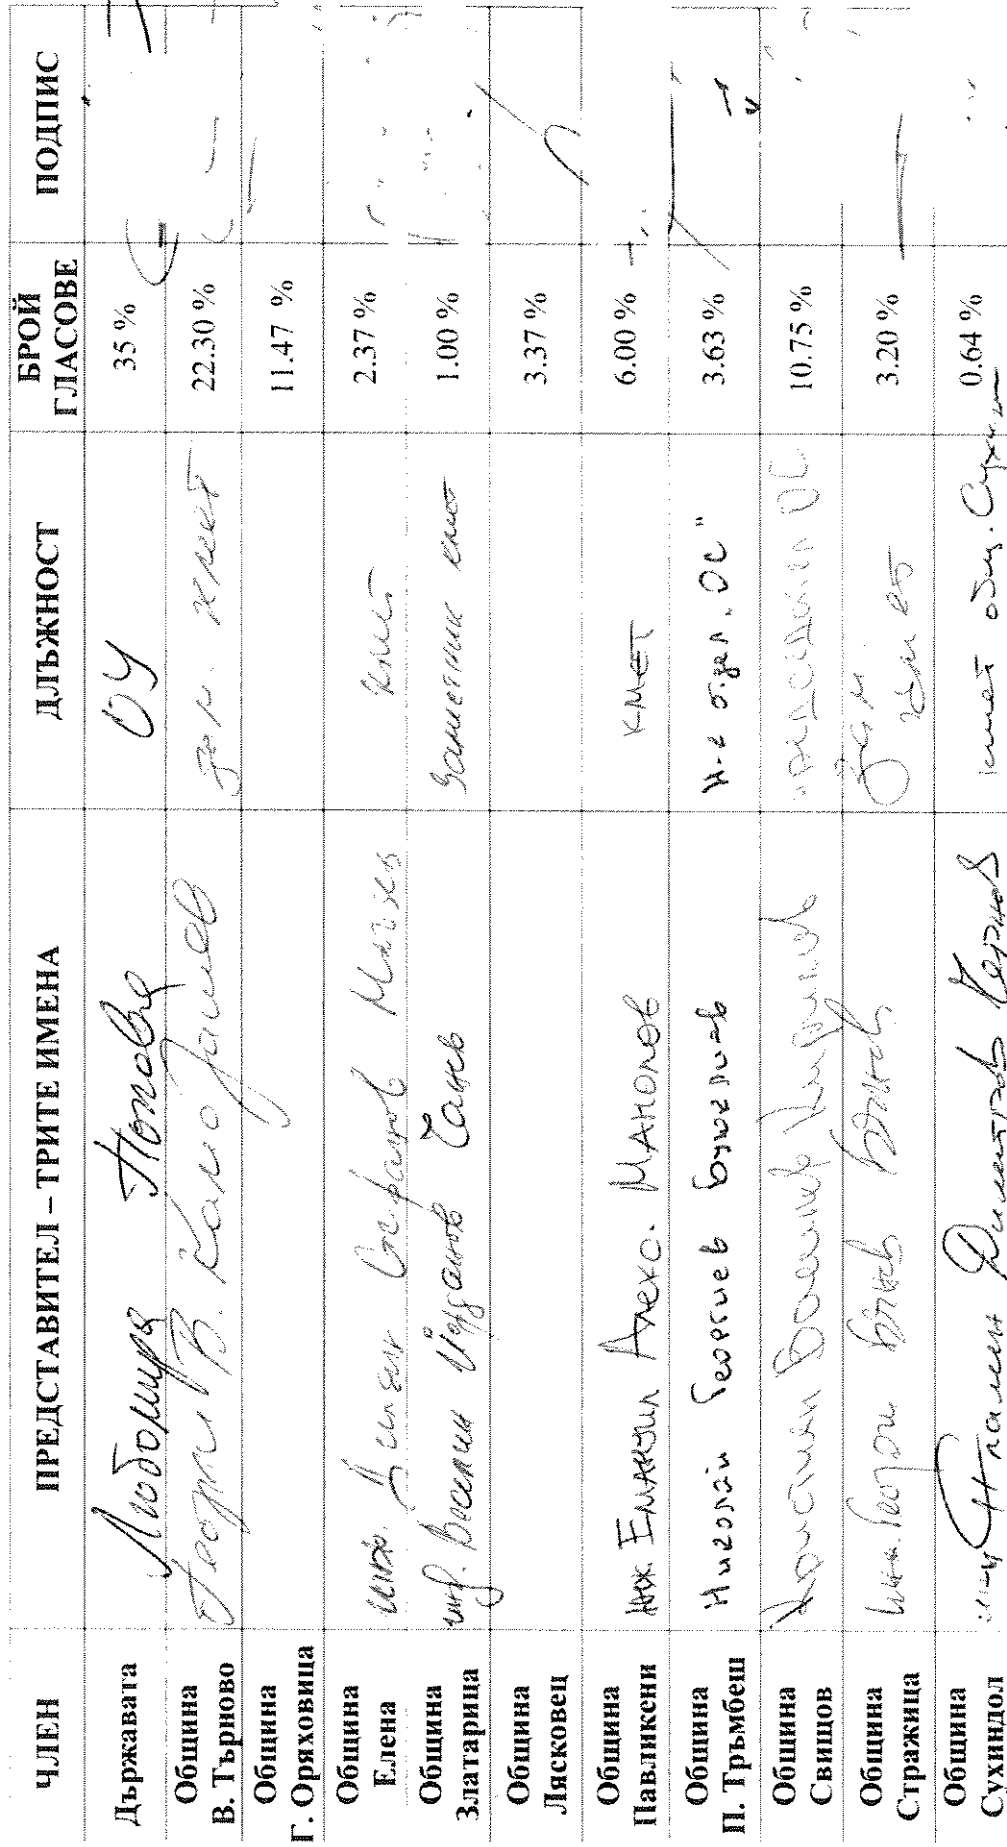 ЧЛЕН ПРЕДСТАВИТЕЛ – ТРИТЕ ИМЕНА ДЛЪЖНОСТ БРОЙ ГЛАСОВЕ ПОДПИС
Държавата Любомира Попова ОУ 35 %
Община В. Търново Георги В. Камарашев зам. кмет 22.30 %
Община Г. Оряховица 11.47 %
Община Елена инж. Дилян Млъзев кмет 2.37 %
Община Златарица инж. Веселин Йорданов Чанев Заместник кмет 1.00 %
Община Лясковец 3.37 %
Община Павликени инж. Емануил Алекс. Манолов КМЕТ 6.00 %
Община П. Тръмбеш Николай Георгиев н-к отдел "ОС" 3.63 %
Община Свищов Кирилов председател ОС 10.75 %
Община Стражица инж. зам. кмет 3.20 %
Община Сухиндол инж. Пламен Димитров Чернев кмет общ. Сухиндол 0.64 %